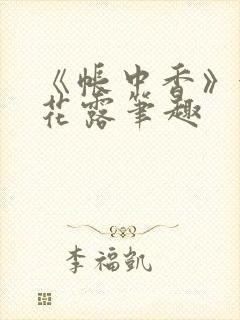 《帐中香》
花露笔趣
李福凯